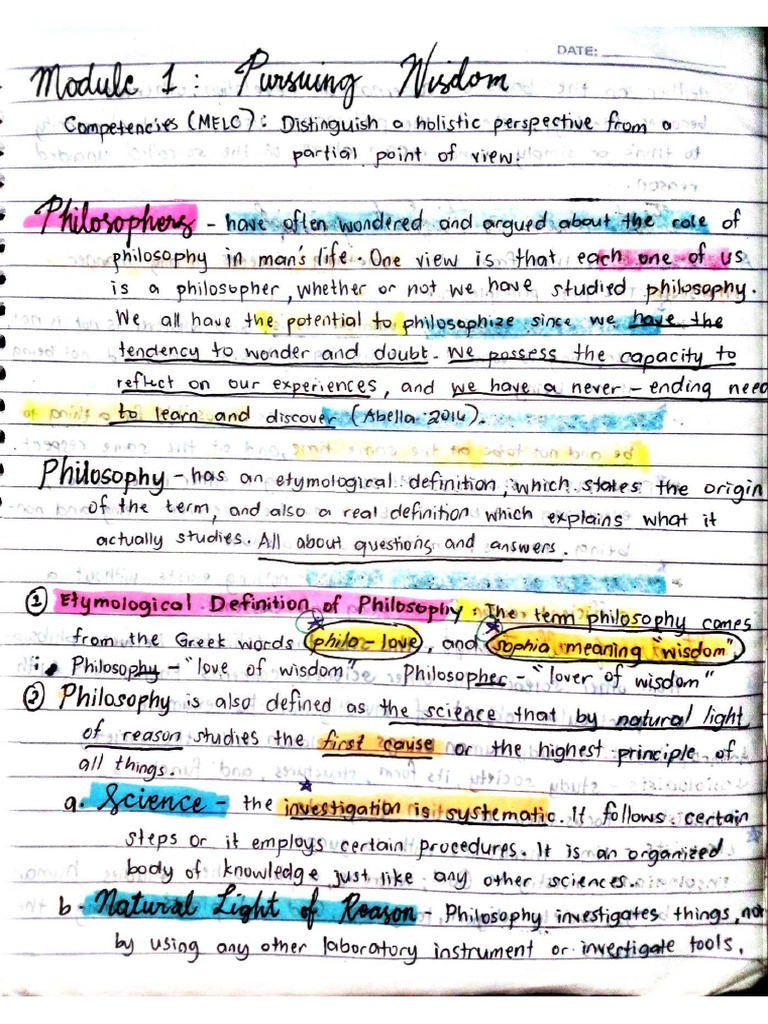 DATE:
Module 1: Pursuing Wisdom
Competencies (MELC): Distinguish a holistic perspective from a
partial point of view.
Philosophers - have often wondered and argued about the role of
philosophy in man's life. One view is that each one of us
is a philosopher, whether or not we have studied philosophy.
We all have the potential to philosophize since we have the
tendency to wonder and doubt. We possess the capacity to
reflect on our experiences, and we have a never-ending need
to learn and discover (Abella 2016).
Philosophy - has an etymological definition, which states the origin
of the term, and also a real definition which explains what it
actually studies. All about questions and answers.
① Etymological Definition of Philosophy: The term philosophy comes
from the Greek words philo-love, and sophia meaning "wisdom".
Philosophy - "love of wisdom" Philosopher - "lover of wisdom"
② Philosophy is also defined as the science that by natural light
of reason studies the first cause or the highest principle of
all things.
a. Science - the investigation is systematic. It follows certain
steps or it employs certain procedures. It is an organized
body of knowledge just like any other sciences.
b. Natural Light of Reason - Philosophy investigates things, not
by using any other laboratory instrument or investigate tools.